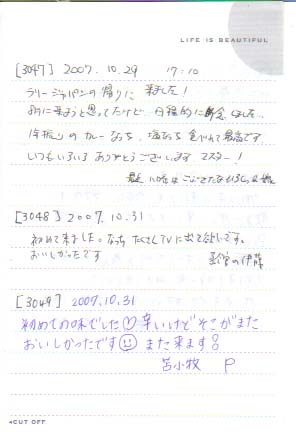 LIFE IS BEAUTIFUL
[3047] 2007.10.29 17:10
ラリージャパンの帰りに 来ました!
前に来ようと思ってたけど 日程的に断念しました…
カレー なっち 食べれて最高です
いつもいろいろ ありがとうございます マスター!
[3048] 2007.10.31
初めて来ました。なっち たくさんTVに出て欲しいです。
おいしかったです 室蘭の伊藤
[3049] 2007.10.31
初めての味でした♡辛いけどそこがまた
おいしかったです☺ また来ます!
苫小牧 P
◂CUT OFF